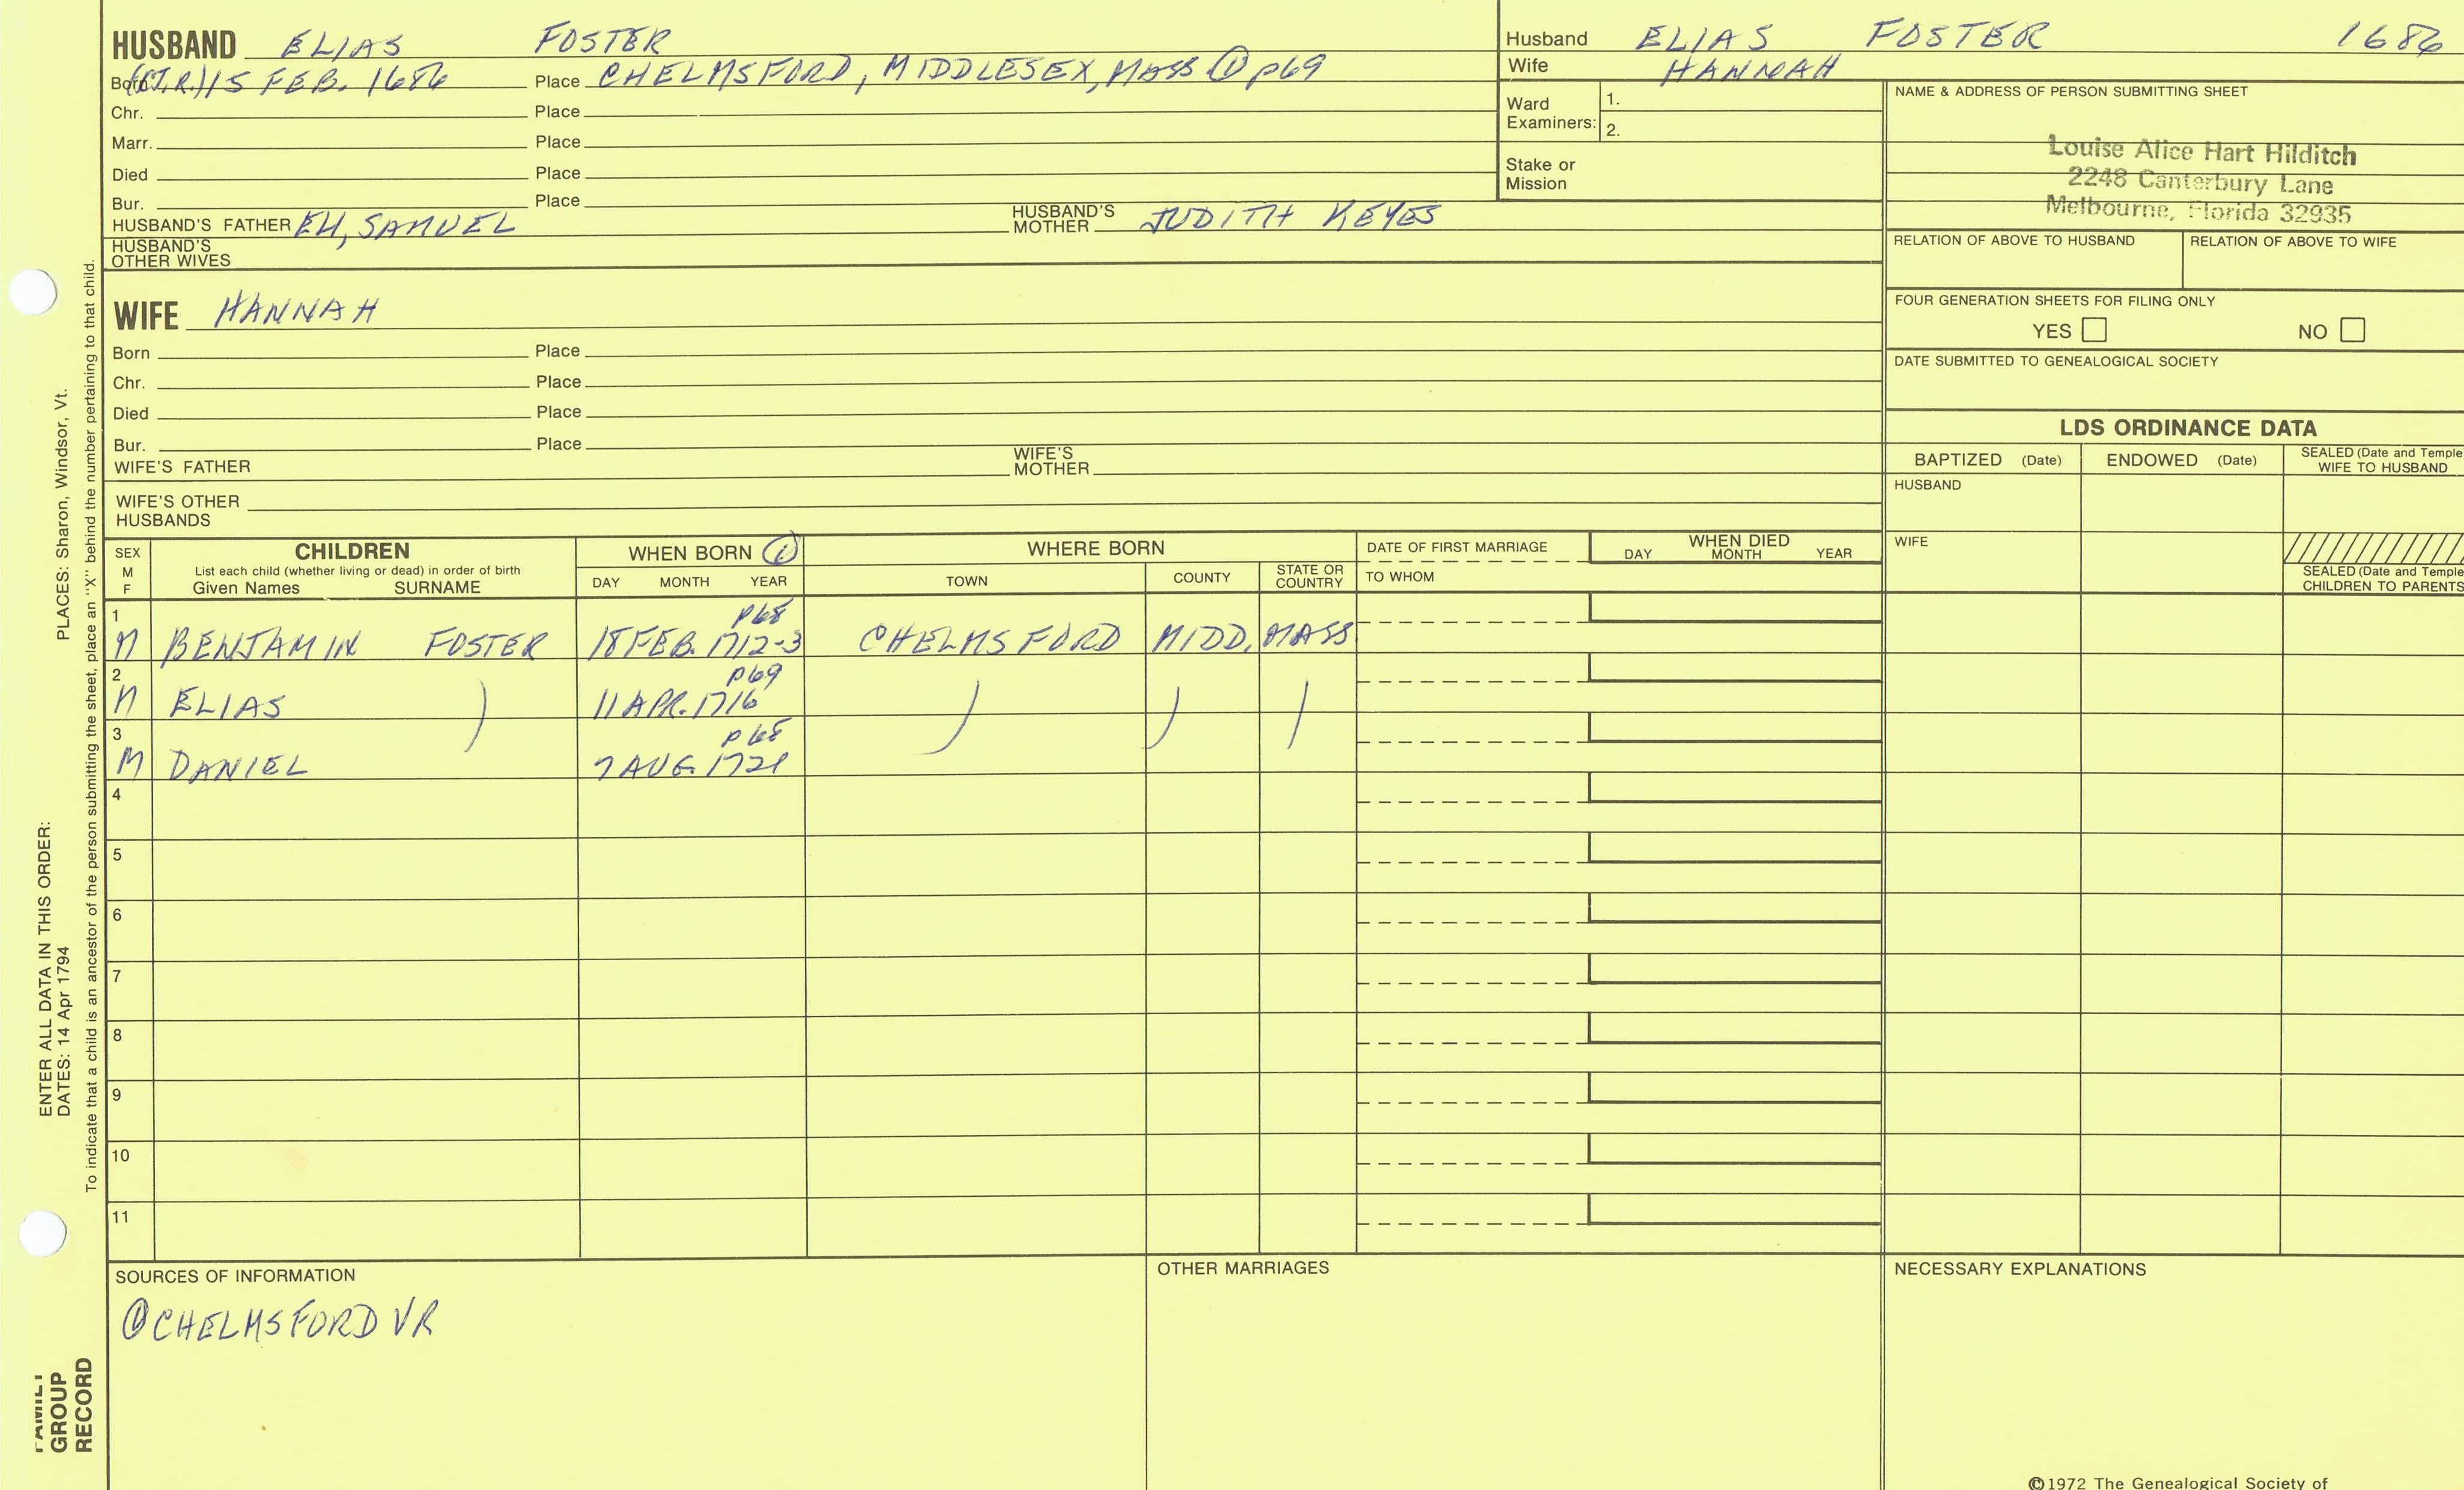 HUSBAND ELIAS FOSTER
Born (C.T.R.) 15 FEB. 1686 Place CHELMSFORD, MIDDLESEX, MASS ① p69
Chr. Place
Marr. Place
Died Place
Bur. Place
HUSBAND'S FATHER SAMUEL HUSBAND'S MOTHER JUDITH KEYES
HUSBAND'S OTHER WIVES
WIFE HANNAH
Born Place
Chr. Place
Died Place
Bur. Place
WIFE'S FATHER WIFE'S MOTHER
WIFE'S OTHER HUSBANDS
Husband ELIAS FOSTER 1686
Wife HANNAH
Ward Examiners: 1.
2.
Stake or Mission
NAME & ADDRESS OF PERSON SUBMITTING SHEET
Louise Alice Hart Hilditch
2248 Canterbury Lane
Melbourne, Florida 32935
RELATION OF ABOVE TO HUSBAND RELATION OF ABOVE TO WIFE
FOUR GENERATION SHEETS FOR FILING ONLY
YES NO
DATE SUBMITTED TO GENEALOGICAL SOCIETY
LDS ORDINANCE DATA
BAPTIZED (Date) ENDOWED (Date) SEALED (Date and Temple
WIFE TO HUSBAND
HUSBAND
WIFE
SEALED (Date and Temple
CHILDREN TO PARENTS
SEX M F
CHILDREN
List each child (whether living or dead) in order of birth
Given Names SURNAME
WHEN BORN ①
DAY MONTH YEAR
WHERE BORN
TOWN COUNTY STATE OR COUNTRY
DATE OF FIRST MARRIAGE
TO WHOM
WHEN DIED
DAY MONTH YEAR
1 p68
M BENJAMIN FOSTER 18 FEB. 1712-3 CHELMSFORD MIDD. MASS
2 p69
M ELIAS 11 APR. 1716
3 p68
M DANIEL 7 AUG
4
5
6
7
8
9
10
11
SOURCES OF INFORMATION
① CHELMSFORD VR
OTHER MARRIAGES
NECESSARY EXPLANATIONS
©1972 The Genealogical Society of
ENTER ALL DATA IN THIS ORDER:
DATES: 14 Apr 1794
PLACES: Sharon, Windsor, Vt.
To indicate that a child is an ancestor of the person submitting the sheet, place an "X" behind the number pertaining to that child.
FAMILY
GROUP
RECORD